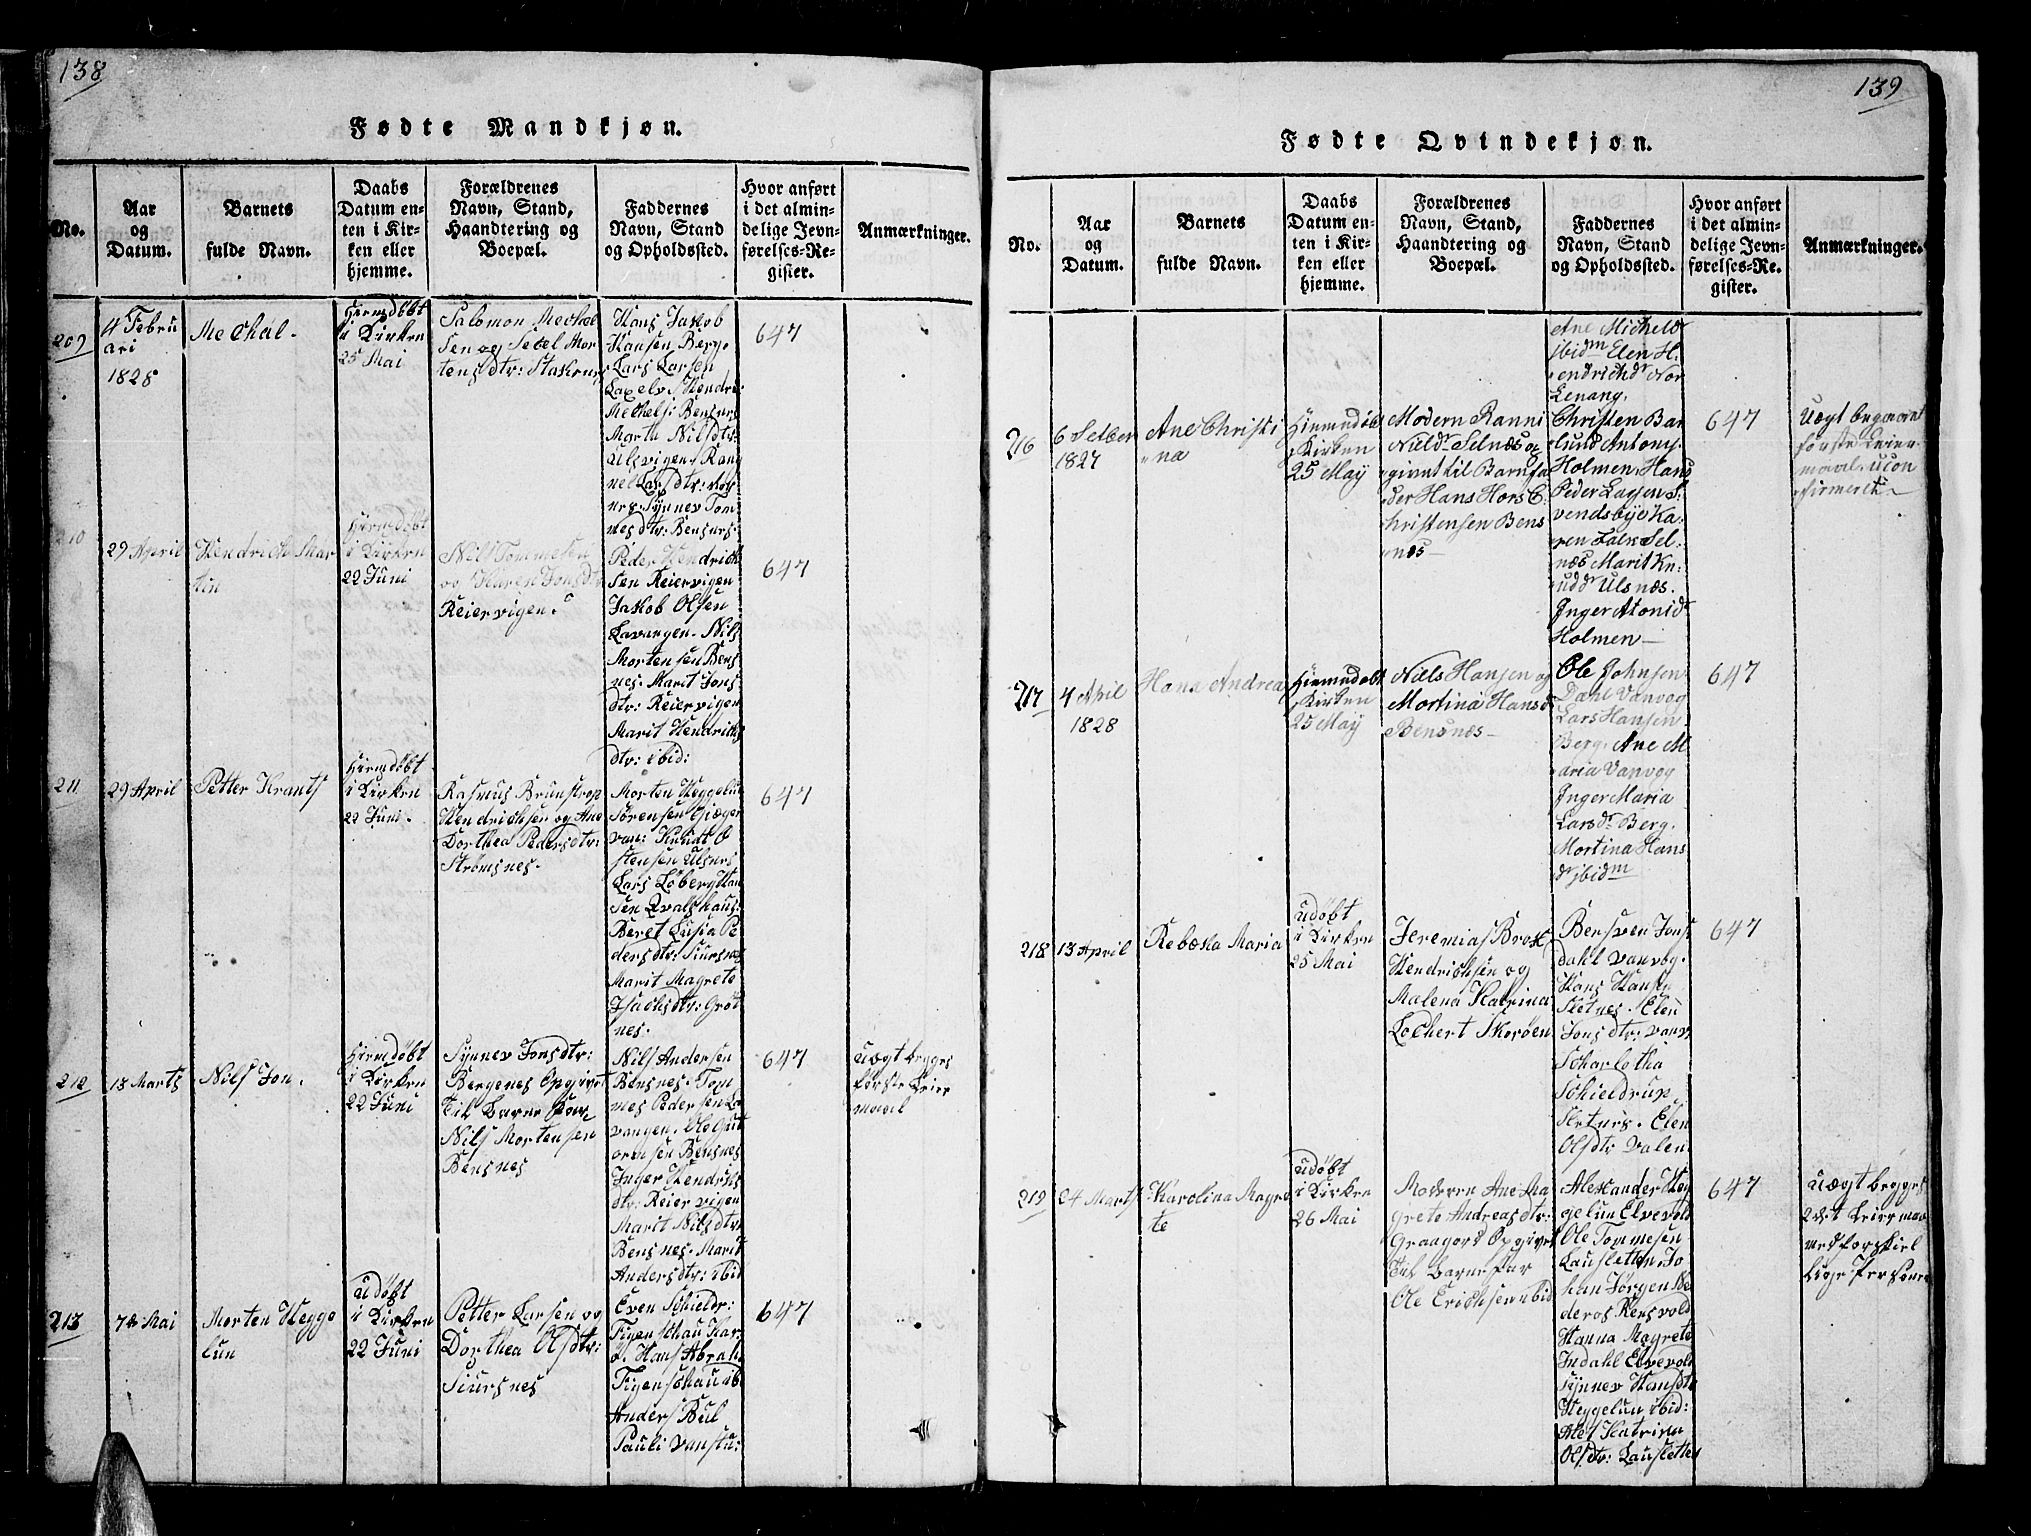 138
Fødte Mandkjøn.
No.
Aar
og
Datum.
Barnets
fulde Navn.
Daabs
Datum en-
ten i Kir-
ken eller
hjemme.
Forældrenes
Navn, Stand,
Haandtering og
Boepæl.
Faddernes
Navn, Stand
og Opholdssted.
Hvor anført
i det almin-
delige Jevn-
førelses-Re-
gister.
Anmærkninger.
209
4 Febru
ari
1828
Mechal-
Hiemdøbt
i Kirken
25 Mai
Salomon Mechel
sen og Sebel Mor
tensdtr:
Hans Jakob
Hansen Berge
Lars Larsen
Laxelv. Hendr
Mechels: Bensnes
Marth Nilsdtr:
Ulsvigen. Ran
nel Larsdtr:
Synnev Tom
mesdtr: Bensnes:
647
210
29 April
Hendrich Mar
tin
Hiemdøbt
i Kirken
22 Juni
Nils Tommesen
og Karen Jonsdtr
Reiervigen.
Peder Hendrich
sen Reiervigen
Jakob Olsen
Lavangen. Nils
Mortensen Bens
nes. Marit Jons
dtr: Reiervigen
Marit Hendrichs
dtr: ibid:
647
211
29 April
Petter Krants
Hiemdøbt
i Kirken
22 Juni.
Rasmus Brunstrop
Hendrichsen og Ane
Dorthea Pedersdtr:
Strømsnes.
Morten Heggelun
Sørensen Giæger
van: Knudt O
stensen Ulsnes
Lars Løberg Han
sen Qvalshaus:
Beret Lusia Pe
dersdtr: Siursnes
Marit Magrete
Isachsdtr: Grøt
nes.
647
212
13 Marts
Nils Jon.
Hiemdøbt
i Kirken
22 Juni
Synnev Jonsdtr:
Bergenes Opgivet
til Barne Far
Nils Mortensen
Bensnes
Nils Andersen
Bensnes. Tom
mes Pedersen La
vangen. Ole Gut
ormsen Bensnes
Inger Hendrichs
dtr: Reiervigen
Marit Nilsdtr
Bensnes. Marit
Andersdtr: ibid
647
uægt begges
første Leier
maal
213
7de Mai
Morten Hegge
lun
udøbt
i Kirken
22 Juni
Petter Larsen og
Dorthea Olsdtr:
Siursnes
Even Schieldr:
Figenschau Kar
ø. Hans Abrah.
Figenschau ib
Anders Bul
Pauli Vanstu:
647
139
Fødte Qvindekjøn.
No.
Aar
og
Datum.
Barnets
fulde Navn.
Daabs
Datum en-
ten i Kir-
ken eller
hjemme.
Forældrenes
Navn, Stand,
Haandtering og
Boepæl.
Faddernes
Navn, Stand
og Opholdssted.
Hvor anført
i det almin-
delige Jevn-
førelses-Re-
gister.
Anmærkninger.
Ane Michelsdr
jbidm Elen H.
endrichdr Nor
Lenang.
216
6 Setber
1827
Ane Christi
na
Hiemmdøbt
Kirken
25 May
Modern Ranni
Nildr Selnæs og
givent til Barnfa
der Hans Hors C.
hristensen Bens
næs
Christen Bar
lund Antony.
Holmen. Hans
Peder Larsen S.
vendsbye Ka
ren Falk Sel
næs Marit Kn
uddr Ulsnæs.
Inger Atonidr
Holmen
647
Uægt begges
første Leier
maal. ucon
firmert
217
4 April
1828
Hana Andrea
Hiemmdøbt
Kirken
25 May
Niels Hansen og
Mortina Hansd
Bensnæs
Ole Johnsen
Dahl Vanvog
Lars Hansen
Berg. Ane M
aria Vanvog
Inger Maria
Larsdr Berg.
Mortina Hans
dr jbidm
647
218
13 April
Rebæka Maria
udøbt
i Kirken
25 Mai
Jeremias Brox
Hendrichsen og
Malena Katrina
Lochert Skorøen
Bensven Jons
dahl Vanvog.
Hans Hansen
Sletnes. Elen
Jonsdtr: Vanv
Scharlotha
Schieldrup
Sletnes. Elen
Olsdtr Valen
647
219
24 Marts
Karolina Magre
te
udøbt
i Kirken
26 Mai
Moderen Ane Ma
grete Andreasdtr:
Graagord Opgivet
til Barnefar
Ole Erichsen ibid
Alexander Heg
gelun Elvevold
Ole Tommesen
Lausletten Jo
han Jørgen Ne
deros Rensvold
Hanna Magrete
Indahl Elvevold
Synnev Hansdtr
Heggelun ibid:
Alet Katrina
Olsdtr: Lausletten
647
uægt begges
2det Leierma
med forskiel
lige Personer